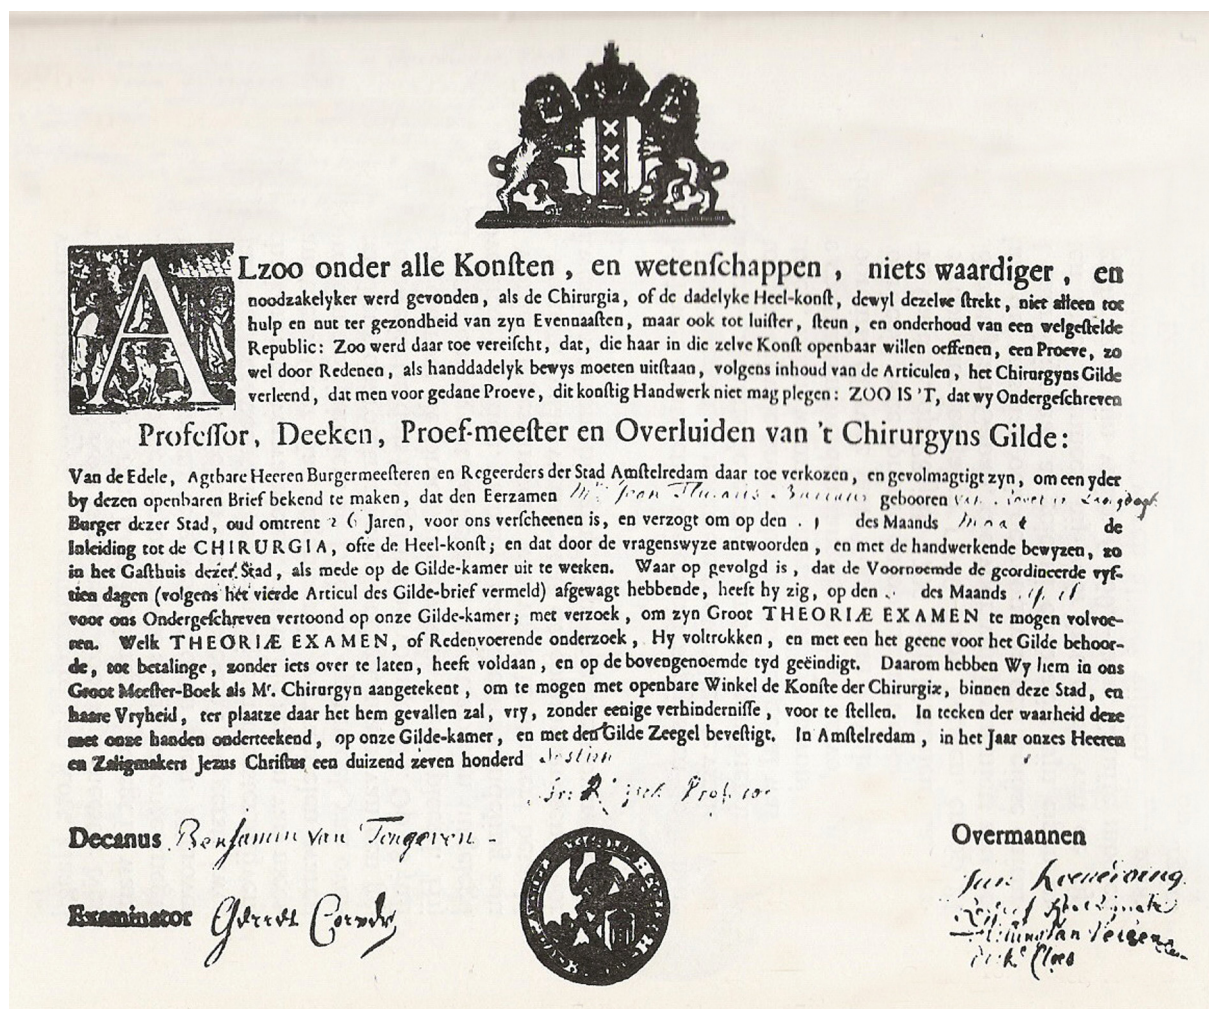 ALzoo onder alle Konſten, en wetenſchappen, niets waardiger, en
noodzakelyker werd gevonden, als de Chirurgia, of de dadelyke Heel-konſt, dewyl dezelve ſtrekt, niet alleen tot
hulp en nut ter gezondheid van zyn Evennaaſten, maar ook tot luiſter, ſteun, en onderhoud van een welgeſtelde
Republic: Zoo werd daar toe vereiſcht, dat, die haar in die zelve Konſt openbaar willen oeffenen, een Proeve, zo
wel door Redenen, als handdadelyk bewys moeten uitſtaan, volgens inhoud van de Articulen, het Chirurgyns Gilde
verleend, dat men voor gedane Proeve, dit konſtig Handwerk niet mag plegen: ZOO IS 'T, dat wy Ondergeſchreven
Profeſſor, Deeken, Proef-meeſter en Overluiden van 't Chirurgyns Gilde:
Van de Edele, Agtbare Heeren Burgermeeſteren en Regeerders der Stad Amſtelredam daar toe verkozen, en gevolmagtigt zyn, om een yder
by dezen openbaren Brief bekend te maken, dat den Eerzamen Jean gebooren van
Burger dezer Stad, oud omtrent 26 Jaren, voor ons verſcheenen is, en verzogt om op den des Maands de
Inleiding tot de CHIRURGIA, ofte de Heel-konſt; en dat door de vragenswyze antwoorden, en met de handwerkende bewyzen, zo
in het Gaſthuis dezer Stad, als mede op de Gilde-kamer uit te werken. Waar op gevolgd is, dat de Voornoemde de geordineerde vyf-
tien dagen (volgens het vierde Articul des Gilde-brief vermeld) afgewagt hebbende, heeft hy zig, op den des Maands
voor ons Ondergeſchreven vertoond op onze Gilde-kamer; met verzoek, om zyn Groot THEORIÆ EXAMEN te mogen volvoe-
ren. Welk THEORIÆ EXAMEN, of Redenvoerende onderzoek, Hy voltrokken, en met een het geene voor het Gilde behoor-
de, tot betalinge, zonder iets over te laten, heeft voldaan, en op de bovengenoemde tyd geëindigt. Daarom hebben Wy hem in ons
Groot Meeſter-Boek als Mr. Chirurgyn aangetekent, om te mogen met openbare Winkel de Konſte der Chirurgiæ, binnen deze Stad, en
haare Vryheid, ter plaatze daar het hem gevallen zal, vry, zonder eenige verhinderniſſe, voor te ſtellen. In teeken der waarheid deze
met onze handen onderteekend, op onze Gilde-kamer, en met den Gilde Zeegel beveſtigt. In Amſtelredam, in het Jaar onzes Heeren
en Zaligmakers Jezus Chriſtus een duizend zeven honderd
Professor
Decanus Benjamin van Tongeren
Overmannen
Jan
Examinator Gerret